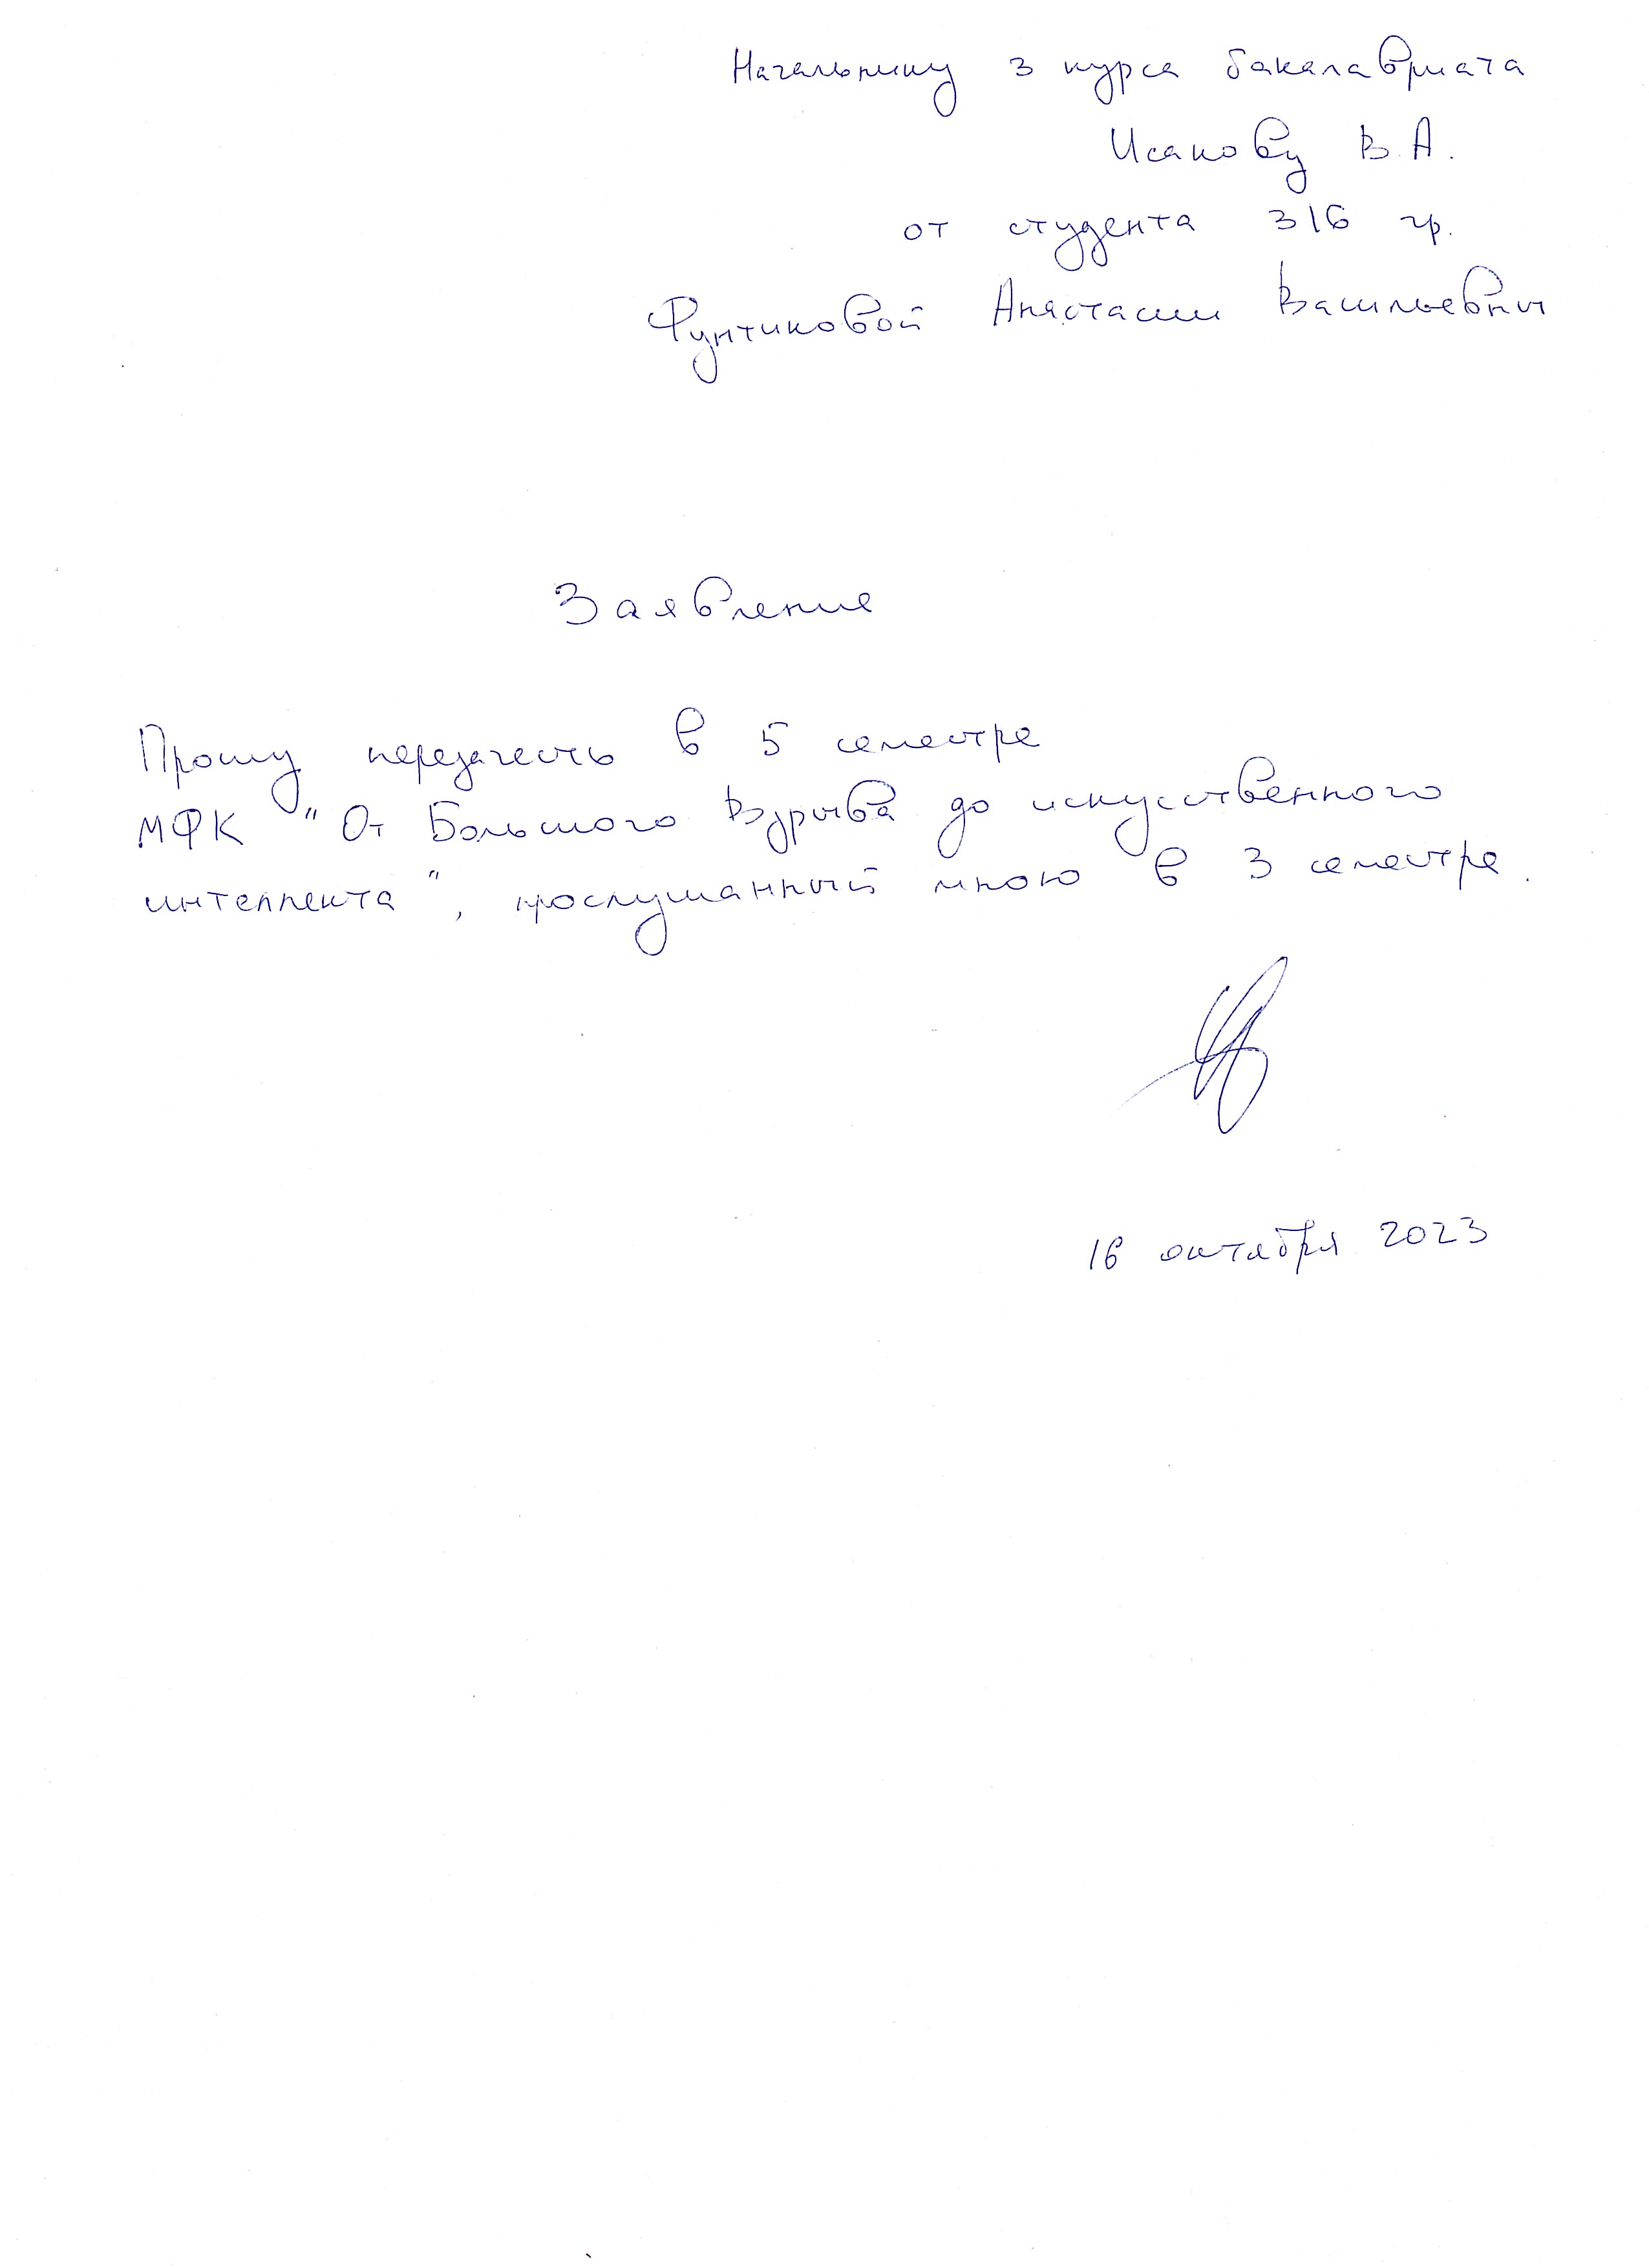 Начальнику 3 курса бакалавриата
Исакову В.А.
от студента 316 гр.
Фунтиковой Анастасии Васильевны
Заявление
Прошу перезачесть в 5 семестре
МФК "От Большого Взрыва до искусственного
интеллекта", прослушанный мною в 3 семестре.
16 октября 2023